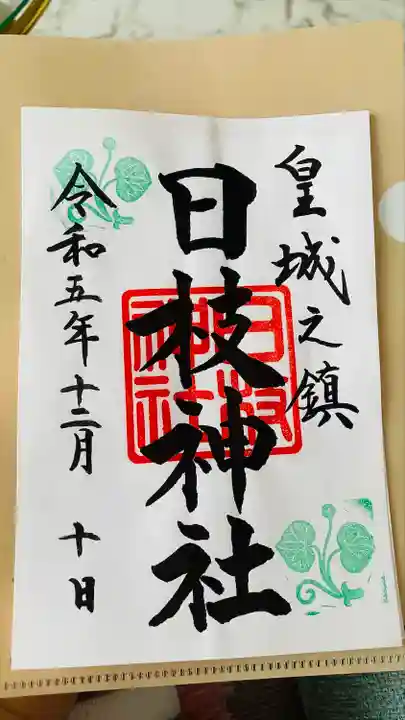 皇城之鎮
日枝神社
日枝神社
令和五年十二月 十日